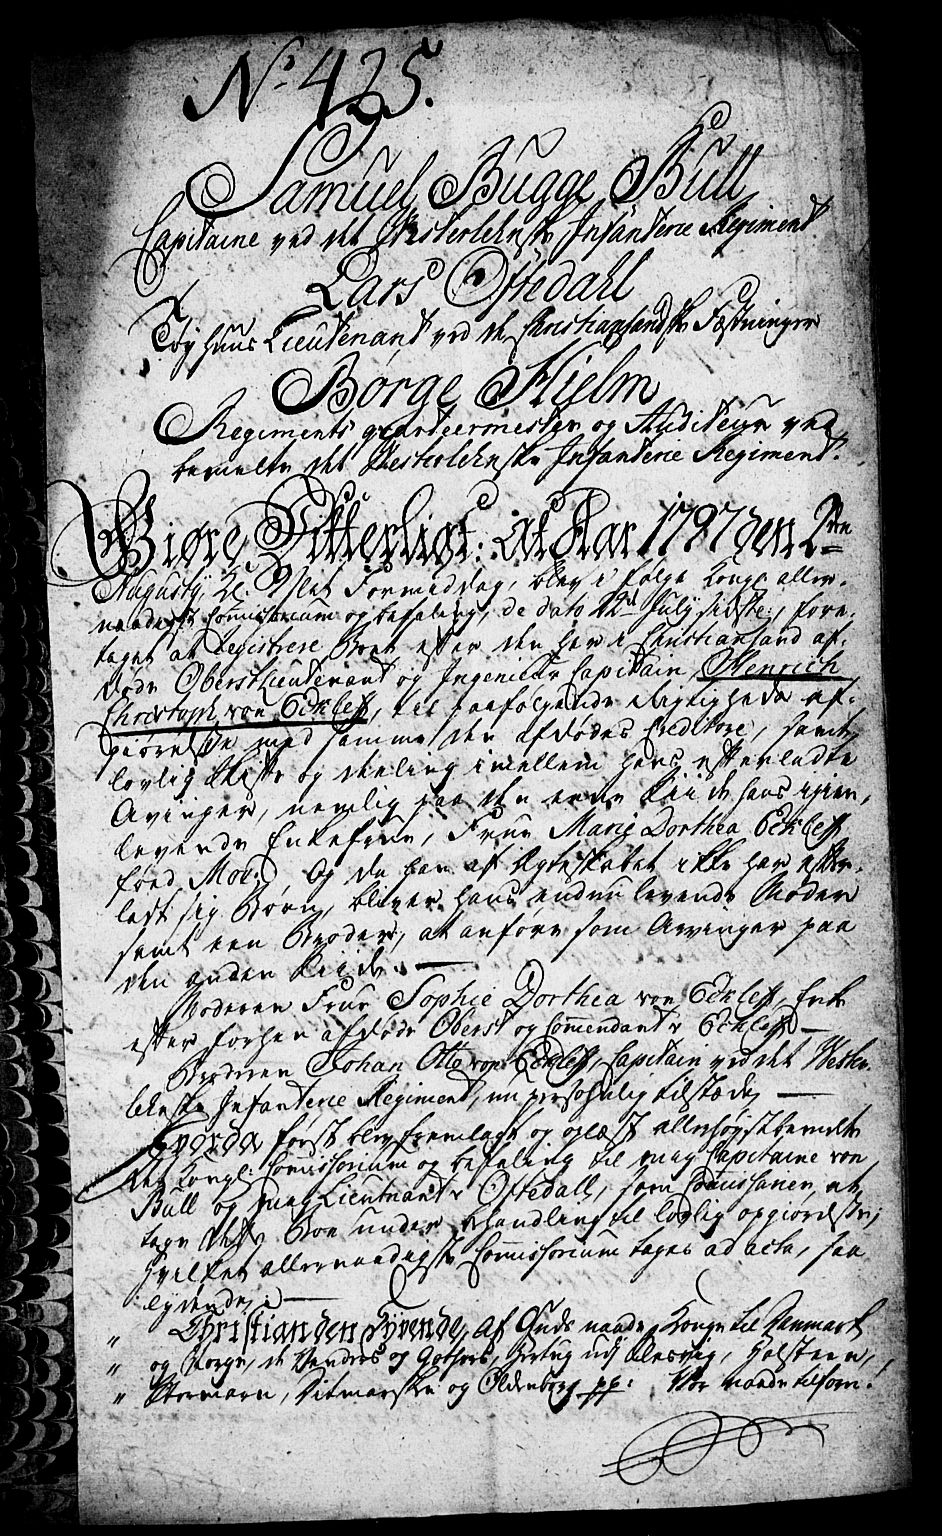 No 425.
Samuel Bugge Bull
Capitaine ved det Vesterlehnske Infanterie Regiment
Lars Oftedahl
Tøyhuus Lieutenant ved de Christiansandske Fæstninger
Børge Hielm
Regiments quarteermester og Auditeur ved
bemelte det Vesterlehnske Infanterie Regiment.
Giøre Vitterligt: at Aar 1797 den 2den
Augusty, Kl. 9 slet Formiddag, blev i følge Konge aller-
naadigst Commissorium og befaling, de dato 12te July sidste, fore-
taget at Registrere Boet efter den her i Christiansand af-
døde Oberstlieutenant og Ingenieur Capitain Henrich
Christoph von Eckleff, til paafølgende Rigtigheds af-
giørelse med samme den afdødes Creditore, samt
lovlig Skifte og deeling imellem hans efterladte
Arvinger, nemlig paa den eene Side hans igien-
levende Enkefrue, Frue Marie Dorthea Eckleff,
fød Moe. Og da han af Ægteskabet ikke har efter-
ladt sig Børn, bliver hans endnu levende Moder
samt een Broder, at anføre som Arvinger paa
den anden Side. —
Moderen Frue Sophie Dorthea von Eckleff, Enke
efter forhen afdøde Oberst og Commendant v Eckleff —
Broderen Johan Otto von Eckleff, Capitain ved det Vester-
lehnske Infanterie Regiment, nu personlig tilstæde, —
Hvorda først blev fremlagt og oplæst allerhøystbemelte
det Kongl: Commissorium og befaling til mig Capitaine von
Bull og mig Lieutnant v Oftedall, som Commissairer, at
tage dette Boe under behandling til lovlig opgiørelse;
hvilket allernaadigste Commissorium tages ad acta, saa
lydende: —
" Christian den Syvende, af Guds naade, Konge til Danmark
" og Norge, de Venders og Gothers, Hertug udj Slesvig, Holsteen,
" Stormarn, Ditmarsken og Oldenborg pp: Vor naade tilforn!